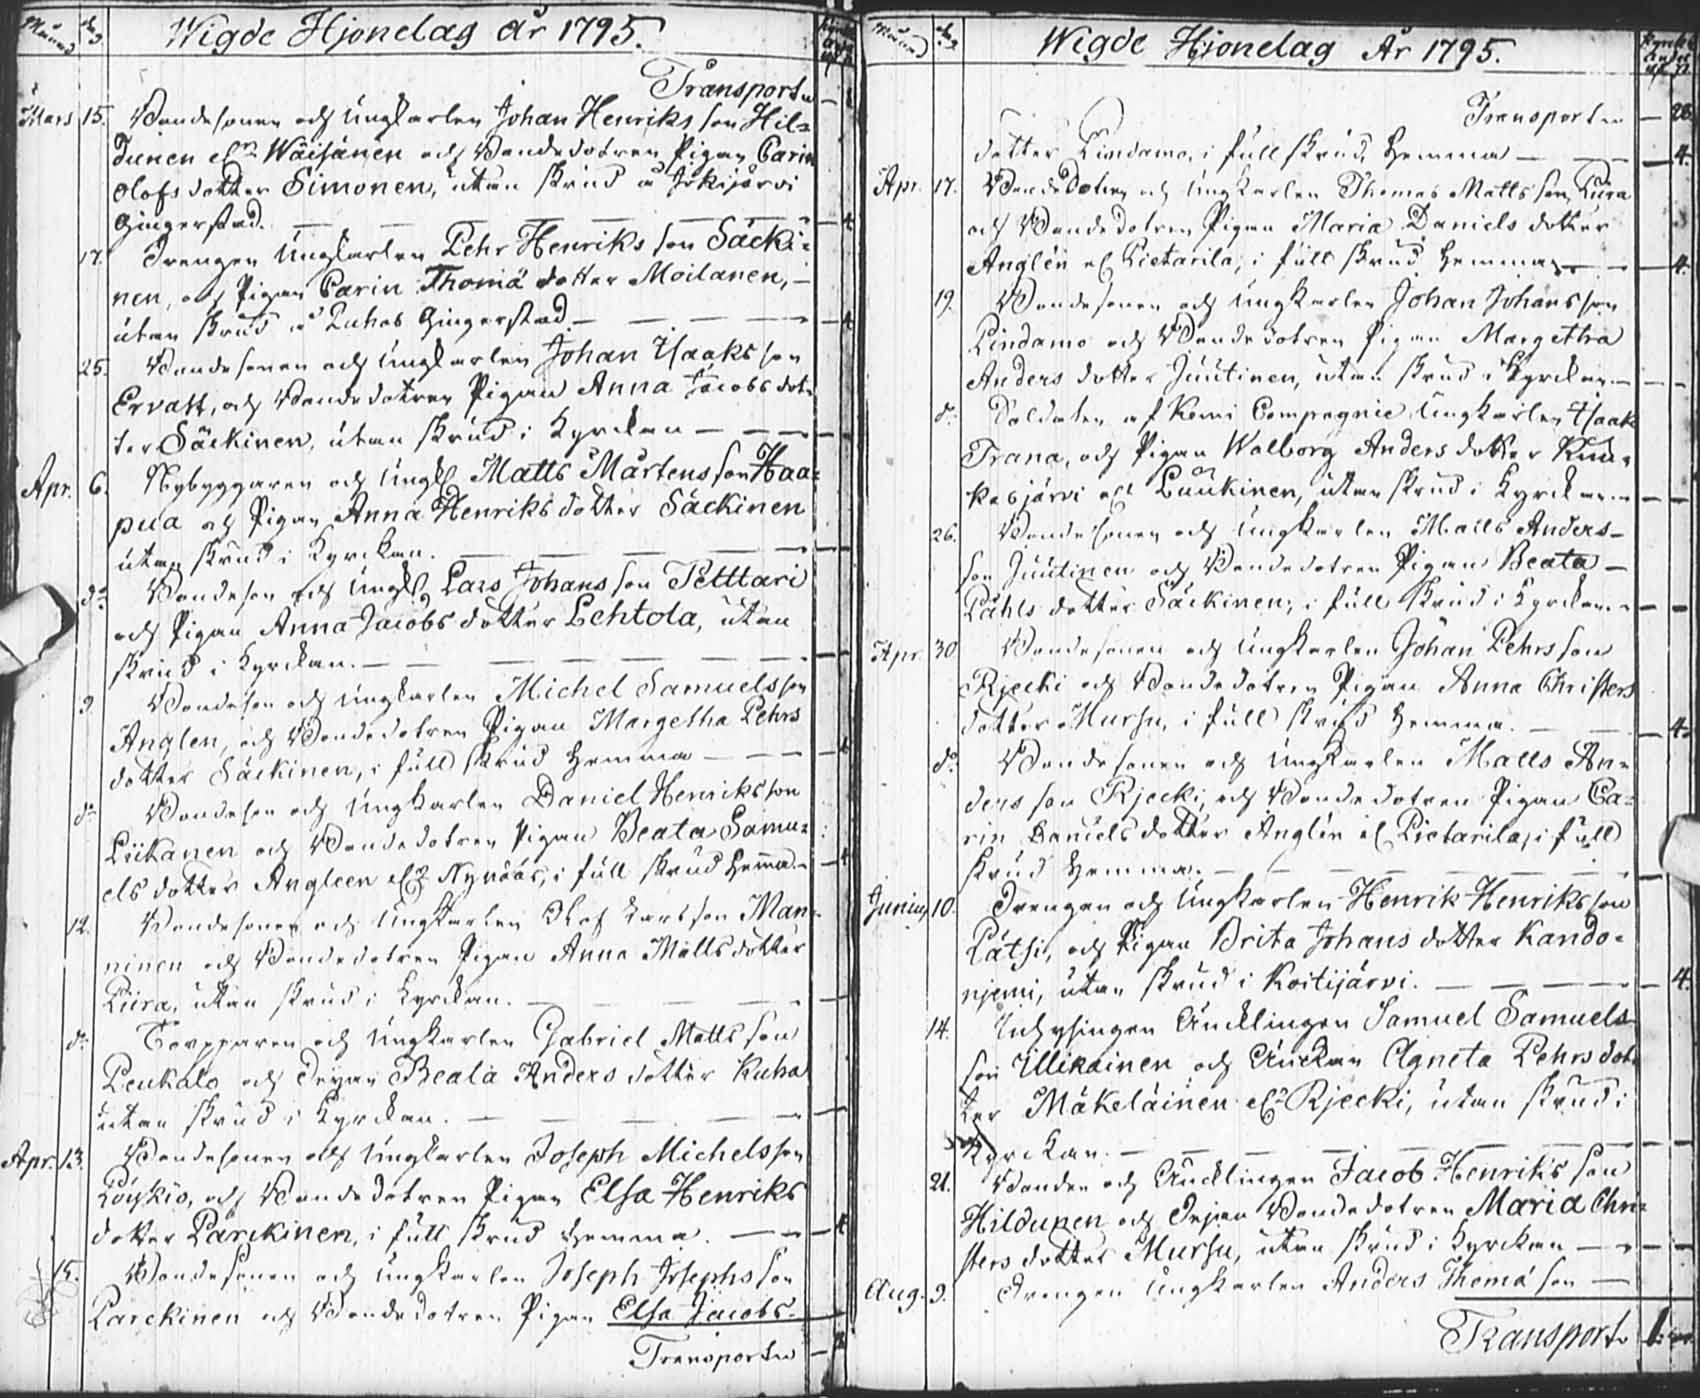 Månad dag Wigde Hjonelag år 1795.
Transport
Mars 15. Bondesonen och Ungkarlen Johan Henriks son Hil=
dunen elr Wäisänen och Bondedotren Pigan Carin
Olofs dotter Simonen, utan skrud å Jokijärvi
Gingerstad. 4
17. Drengen Ungkarlen Pehr Henriks son Säcki=
nen, och Pigan Carin Thomæ dotter Moilanen,
utan skrud å Puhos Gingerstad 4
25. Bondesonen och Ungkarlen Johan Isaaks son
Ervast, och Bondedotren Pigan Anna Jacobs dot=
ter Säckinen, utan skrud i Kyrckan
Apr. 6. Nybyggaren och Ungk. Matts Mårtens son Haa=
pua och Pigan Anna Henriks dotter Säckinen
utan skrud i Kyrckan.
do Bondeson och Ungk. Lars Johans son Petttari
och Pigan Anna Jacobs dotter Lehtola, utan
skrud i Kyrckan.
9. Bondeson och Ungkarlen Michel Samuels son
Anglen, och Bondedotren Pigan Margetha Pehrs
dotter Säckinen, i full skrud Hemma 4
do Bondeson och Ungkarlen Daniel Henriks son
Liikanen och Bondedotren Pigan Beata Samu=
els dotter Angleen elr Nynäás, i full skrud Hemma. 4
12. Bondesonen och Ungkarlen Olof Lars son Man=
ninen och Bondedotren Pigan Anna Matts dotter
Pura, utan skrud i Kyrckan.
do Torpparen och Ungkarlen Gabriel Matts son
Peukalo och Pigan Beata Anders dotter Kuha
utan skrud i Kyrckan.
Apr. 13. Bondesonen och Ungkarlen Joseph Michels son
Löyskiö, och Bondedotren Pigan Elsa Henriks
dotter Parckinen, i full skrud Hemma. 4
15. Bondesonen och Ungkarlen Joseph Josephs son
Parckinen och Bondedotren Pigan Elsa Jacobs-
Transport
Månad dag Wigde Hjonelag År 1795.
Transport 28
dotter Lindamo, i full skrud Hemma 4.
Apr. 17. Bondesonen och Ungkarlen Thomas Matts son Pura
och Bondedotren Pigan Maria Daniels dotter
Anglén el Pietarila, i full skrud Hemma 4.
19. Bondesonen och Ungkarlen Johan Johans son
Lindamo och Bondedotren Pigan Margetha
Anders dotter Juutinen, utan skrud i Kyrckan
do Soldaten af Kemi Compagnie Ungkarlen Isaak
Trana, och Pigan Walborg Anders dotter Kuu=
kasjärvi elr Luukinen, utan skrud i Kyrckan
26. Bondesonen och Ungkarlen Matts Anders-
son Juutinen och Bondedotren Pigan Beata
Påhls dotter Säckinen, i full skrud i Kyrckan
Apr. 30 Bondesonen och Ungkarlen Johan Pehrs son
Rjecki och Bondedotren Pigan Anna Christers
dotter Mursu, i full skrud Hemma. 4.
do Bondesonen och Ungkarlen Matts An=
ders son Rjecki, och Bondedotren Pigan Ca=
rin Daniels dotter Anglén el Pietarila, i full
skrud Hemma.
Junius 10. Drengen och Ungkarlen Henrik Henriks son
Pätsi, och Pigan Brita Johans dotter Kando=
njemi, utan skrud i Koitijärvi. 4.
14. Inhysingen Änklingen Samuel Samuels
son Ullikainen och Änckan Agneta Pehrs dot=
ter Mäkeläinen elr Rjecki, utan skrud i
Kyrckan.
21. Bonden och Äncklingen Jacob Henriks son
Hildunen och Bondedotren Maria Chri=
sters dotter Mursu, utan skrud i Kyrckan
Aug. 9. Drengen Ungkarlen Anders Thomæ son
Transport